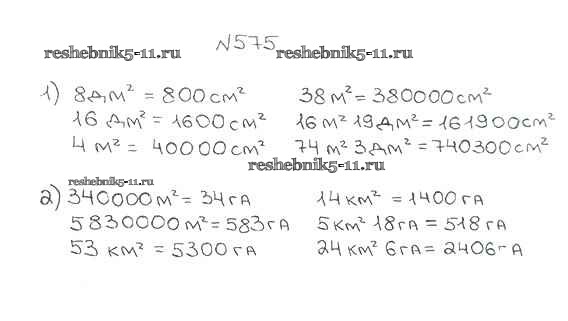 №575
reshebnik5-11.ru reshebnik5-11.ru
1) 8дм² = 800см² 38м² = 380000см²
16 дм² = 1600см² 16м² 19дм² = 161900см²
4м² = 40000см² 74м² 3дм² = 740300см²
reshebnik5-11.ru
reshebnik5-11.ru
2) 340000м² = 34га 14км² = 1400га
5830000м² = 583га 5км² 18га = 518га
53 км² = 5300га 24км² 6га = 2406га